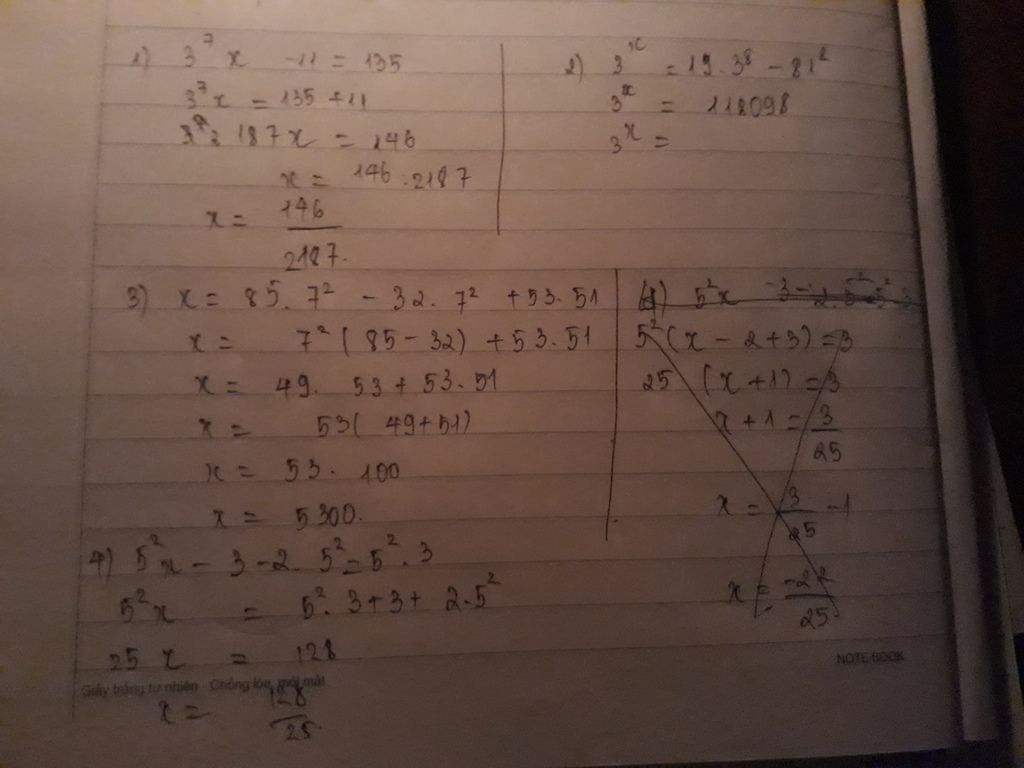 1) 3^7 x - 11 = 135
3^7 x = 135 + 11
187x = 146
x = 146 : 2187
x = 146/2187.
2) 3^x = 19.3^8 - 81^2
3^x = 118098
3^x =
3) x = 85. 7^2 - 32. 7^2 + 53.51
x = 7^2 (85 - 32) + 53.51
x = 49. 53 + 53.51
x = 53( 49+51)
x = 53. 100
x = 5300.
4) 5^2 x - 3 - 2.
5^2 (x - 2 + 3) = 3
25 (x + 1) = 3
x + 1 = 3/25
x = 3/25 - 1
x = -22/25
4) 5^2 x - 3 - 2. 5^2 = 5^2 . 3
5^2 x = 5^2. 3 + 3 + 2.5^2
25 x = 128
x = 128/25.
Giấy trắng tự nhiên Chống lóa, mỏi mắt
NOTE BOOK